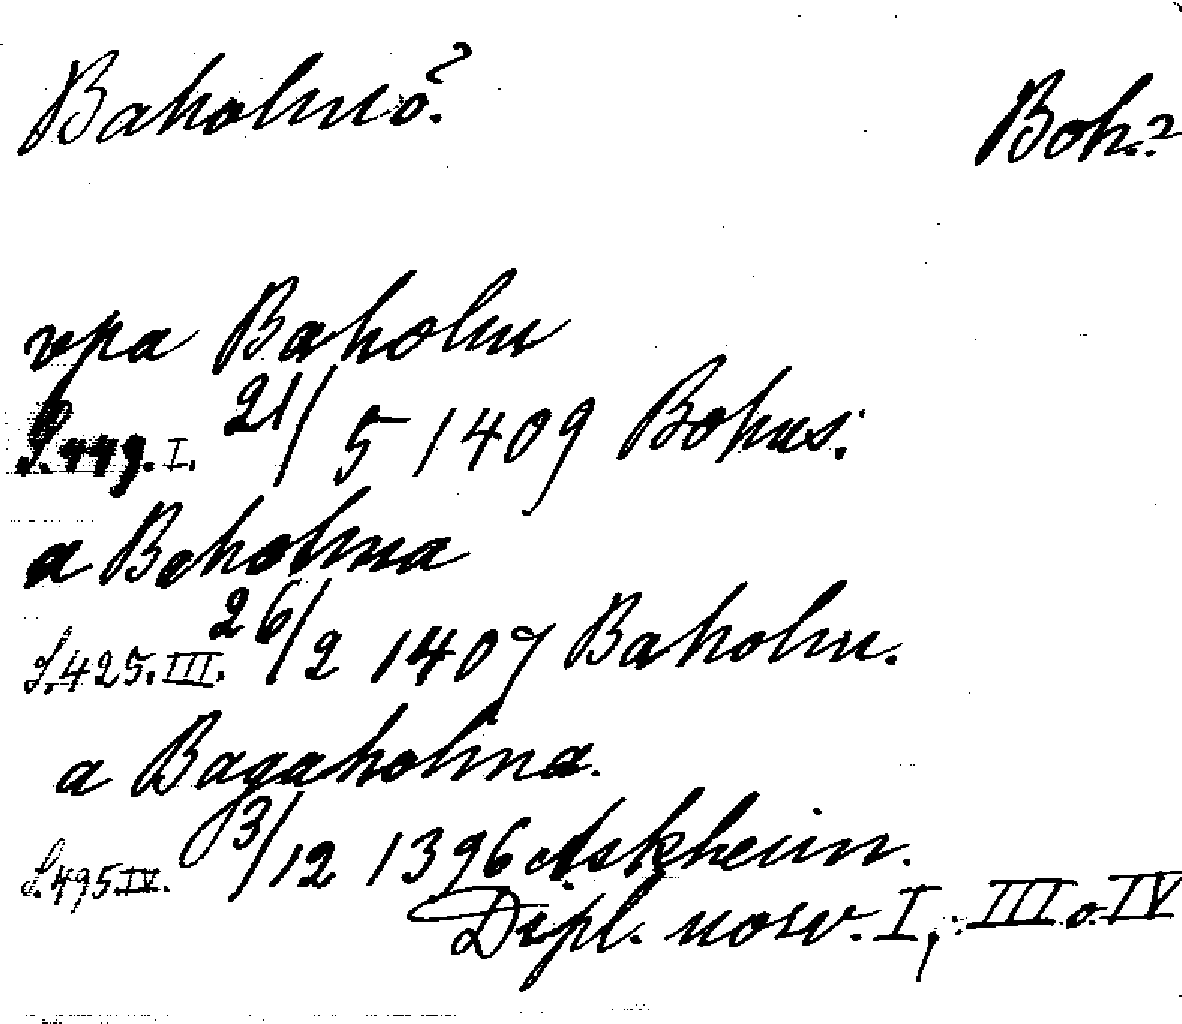 Baholmö? Boh.?
vpa Baholm
S. 449. I. 21/5 1409 Bohus.
a Boholma
S. 425. III. 26/2 1407 Baholm.
a Bagaholma.
S. 495 IV. 3/12 1396 Askheim.
Dipl. norv. I, III o. IV